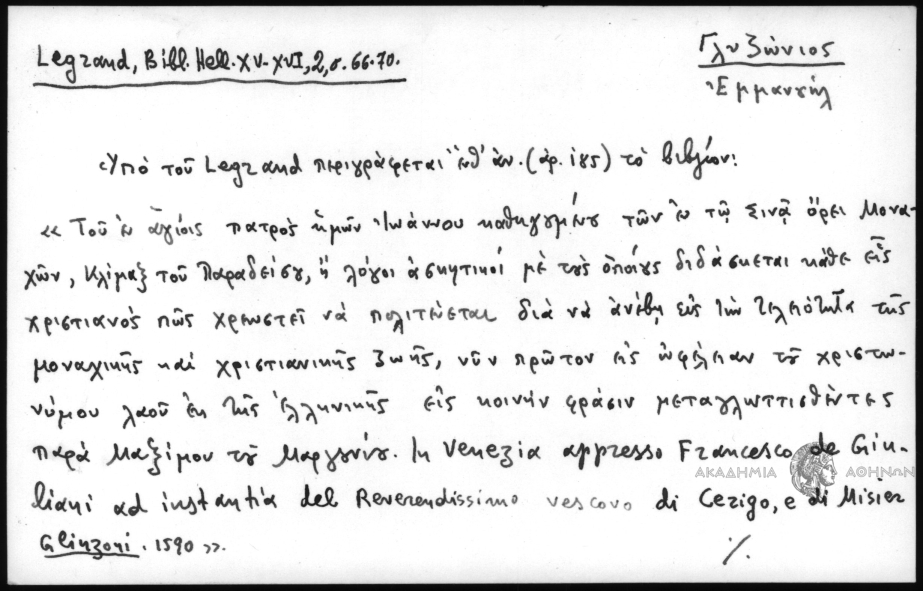 Legrand, Bibl. Hell. XV-XVI, 2, σ. 66-70.
Γλυζώνιος
Ἐμμανουὴλ
Ὑπὸ τοῦ Legrand περιγράφεται ὑπ' ἀν. (ἀρ. 185) τὸ βιβλίον:
« Τοῦ ἐν ἁγίοις πατρὸς ἡμῶν Ἰωάννου καθηγουμένου τῶν ἐν τῷ Σινᾷ ὄρει Μονα-
χῶν, Κλίμαξ τοῦ Παραδείσου, ἢ λόγοι ἀσκητικοί μὲ τοὺς ὁποίους διδάσκεται κάθε εἷς
χριστιανὸς πῶς χρεωστεῖ νὰ πολιτεύεται διὰ νὰ ἀνέβῃ εἰς τὴν τελειότητα τῆς
μοναχικῆς καὶ χριστιανικῆς ζωῆς, νῦν πρῶτον εἰς ὠφέλειαν τοῦ χριστω-
νύμου λαοῦ ἐκ τῆς ἑλληνικῆς εἰς κοινὴν φράσιν μεταγλωττισθέντες
παρὰ Μαξίμου τοῦ Μαργουνίου. In Venezia appresso Francesco de Giu-
liani ad instantia del Reverendissimo vescovo di Cerigo, e di Misier
Glinzoni. 1590 ».
%.
ΑΚΑΔΗΜΙΑ ΑΘΗΝΩΝ